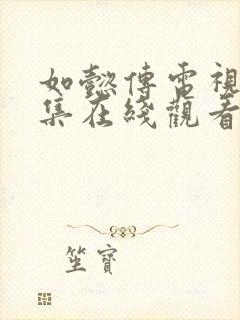 如懿傳電視
集在綫觀看
坐寶